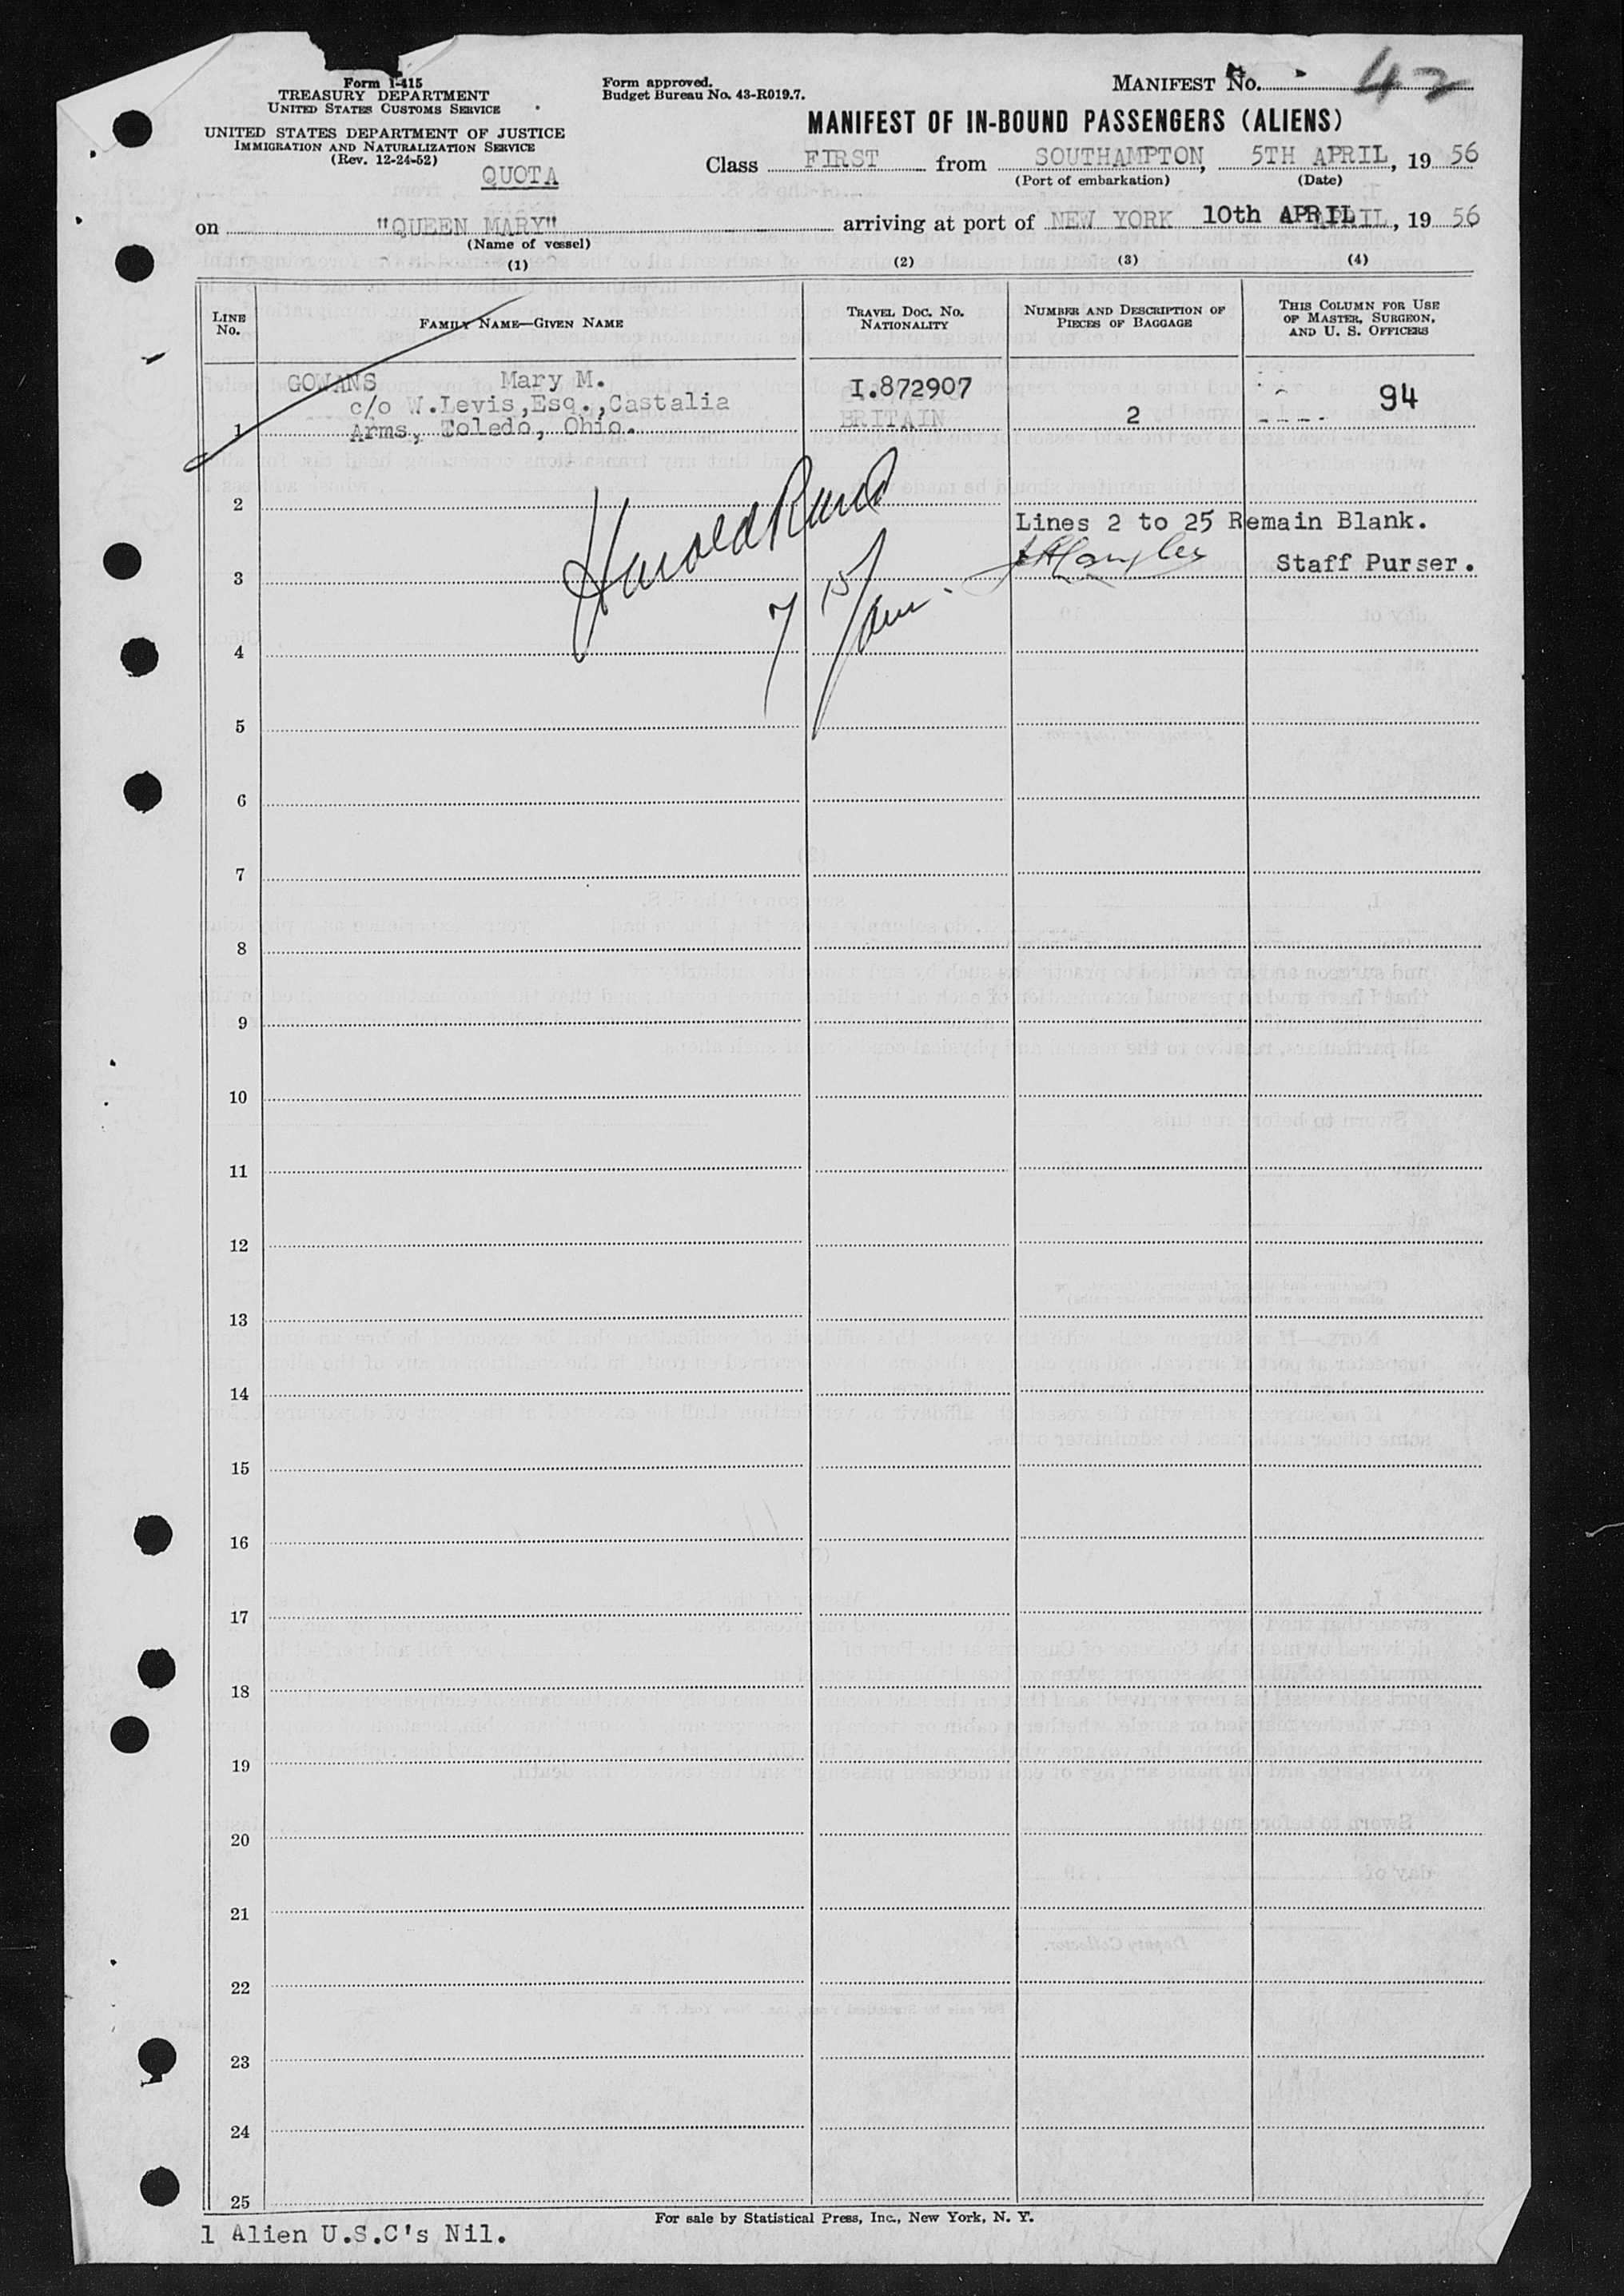 Form I-415
TREASURY DEPARTMENT
UNITED STATES CUSTOMS SERVICE
UNITED STATES DEPARTMENT OF JUSTICE
IMMIGRATION AND NATURALIZATION SERVICE
(Rev. 12-24-52)
QUOTA
Form approved.
Budget Bureau No. 43-R019.7.
MANIFEST NO. 42
MANIFEST OF IN-BOUND PASSENGERS (ALIENS)
Class FIRST from SOUTHAMPTON, 5TH APRIL, 19 56
(Port of embarkation) (Date)
on "QUEEN MARY" arriving at port of NEW YORK 10th APRIL, 19 56
(Name of vessel)
(1) (2) (3) (4)
LINE No. FAMILY NAME—GIVEN NAME TRAVEL DOC. NO. NATIONALITY NUMBER AND DESCRIPTION OF PIECES OF BAGGAGE THIS COLUMN FOR USE OF MASTER, SURGEON, AND U. S. OFFICERS
GOWANS Mary M. I.872907 94
c/o W.Levis,Esq.,Castalia
1 Arms, Toledo, Ohio. BRITAIN 2
2
Lines 2 to 25 Remain Blank.
Harold
Staff Purser.
3
7 15/am.
4
5
6
7
8
9
10
11
12
13
14
15
16
17
18
19
20
21
22
23
24
25
For sale by Statistical Press, Inc., New York, N. Y.
1 Alien U.S.C's Nil.